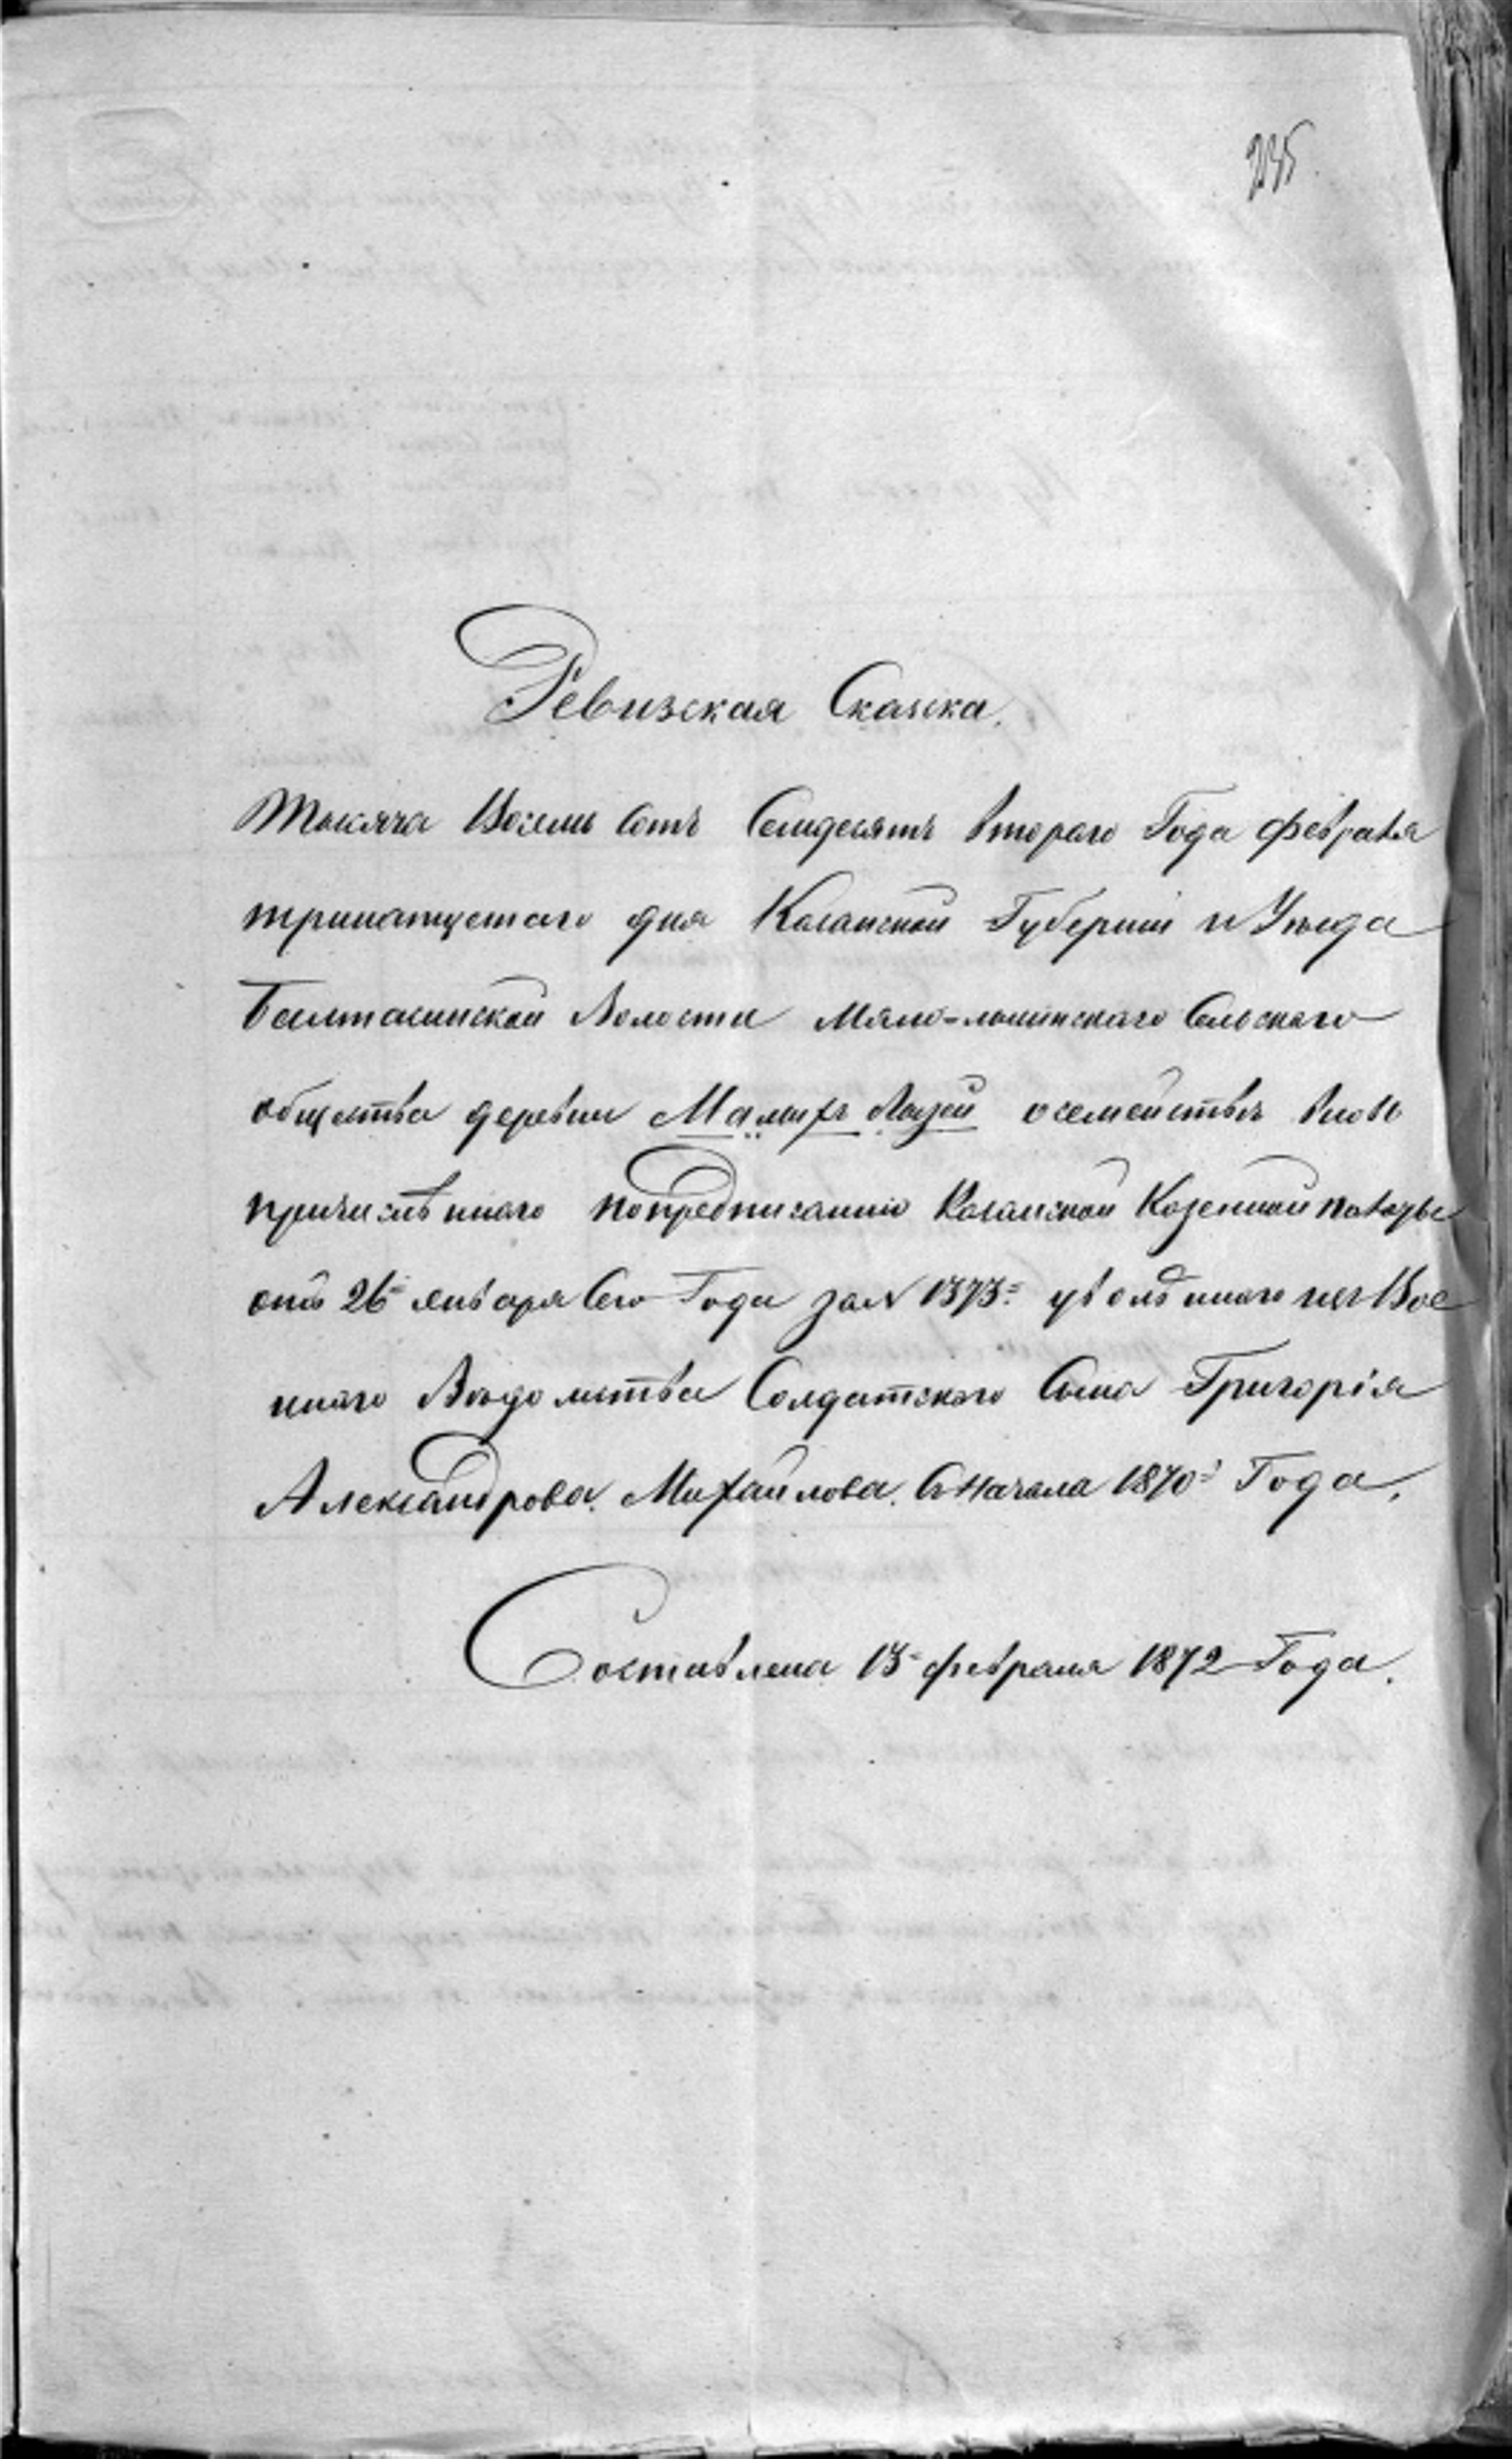 235
Ревизская Сказка.
Тысяча Восемь Сотъ Семдесятъ втораго Года февраля
тринатцетаго дня Казанской Губерніи и Уѣзда
Балтасинской Волости Сельскаго
общества деревни осемействѣ вновь
причислѣннаго попредписанію Казанской Козенной палаты
отъ 26 января Сего Года за № 1373 уволѣннаго изъ Вое
ннаго Вѣдомства Солдатскаго Сына Григорія
Александрова. Михайлова. Съ Начала 1870 Года.
Составлена 13 февраля 1872 Года.